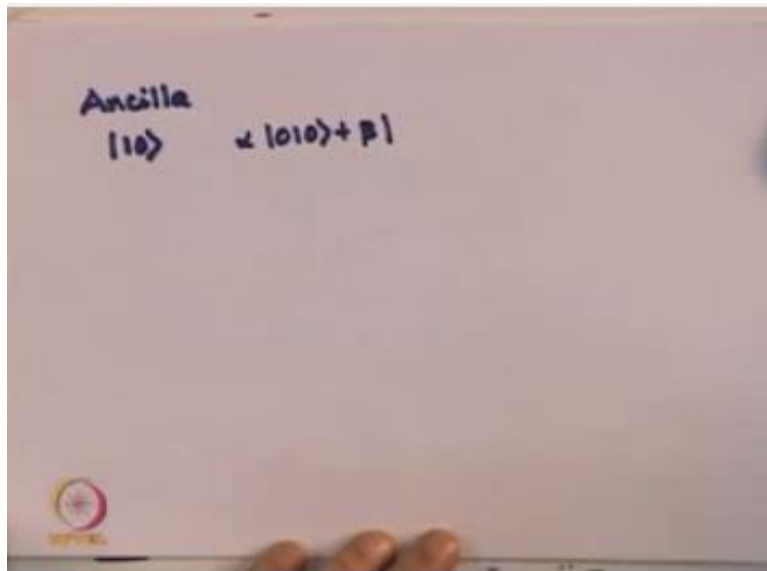 Ancilla
|10⟩ α |010⟩ + β |
NPTEL